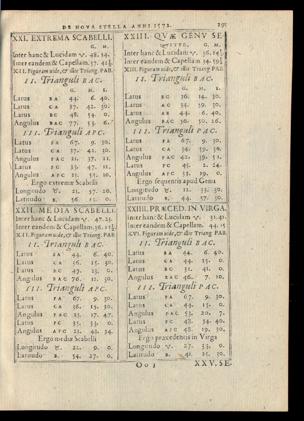 DE NOVA STELLA ANNI 1572. 291
XXI. EXTREMA SCABELLI.
G. M.
Inter hanc & Lucidam 48. 54.
Inter eandem & Capellam. 37. 42½
XII. Figuram vide, & illic Triang. PAB.
II. Trianguli BAC.
G. M. S.
Latus BA 44. 6. 40.
Latus CA 37. 42. 30.
Latus BC 48. 54. 0.
Angulus BAC 77. 53. 6.
III. Trianguli APC.
Latus PA 67. 9. 30.
Latus CA 37. 42. 30.
Angulus PAC 21. 37. 11.
Latus PC 33. 47. 11.
Angulus APC 21. 51. 10.
Ergo extremæ Scabelli
Longitudo 21. 57. 20.
Latitudo B. 56. 12. 0.
XXII. MEDIA SCABELLI.
Inter hanc & Lucidam 47. 23.
Inter eandem & Capellam. 36. 15½
XII. Figuram vide, & illic Triang. PAB.
II. Trianguli BAC.
Latus BA 44. 6. 40.
Latus CA 36. 15. 30.
Latus BC 47. 23. 0.
Angulus BAC 76. 12. 30.
III. Trianguli APC.
Latus PA 67. 9. 30.
Latus CA 36. 15. 30.
Angulus PAC 23. 17. 47.
Latus PC 35. 33. 0.
Angulus APC 23. 42. 54.
Ergo mediæ Scabelli
Longitudo 21. 9. 0.
Latitudo B. 54. 27. 0.
XXIII. QVÆ GENV SE-
G. M.
Inter hanc & Lucidam
Inter eandem & Capellam. 34. 39½
XIII. Figuram vide, & illic Triang. PAB.
II. Trianguli BAC.
Latus BC 36. 14. 30.
Latus AC 34. 39. 30.
Latus AB 44. 6. 40.
Angulus BAC
III. Trianguli APC.
Latus PA 67. 9. 30.
Latus CA 34. 39. 30.
Angulus PAC 42. 39. 51.
Latus PC 45. 2. 24.
Angulus APC 33. 19. 0.
Ergo sequentis apud Genu
Longitudo 12. 33. 30.
Latitudo B. 44. 57. 30.
XXIIII. PRÆCED. IN VIRGA.
Inter hanc & Lucidam 31. 41.
Inter eandem & Capellam. 44. 15
XVI. Figuram vide, & illic Triang. PAB.
II. Trianguli BAC.
Latus BA 44. 6. 40.
Latus CA 44. 15. 0.
Latus BC 31. 41. 0.
Angulus BAC 46. 7. 10.
III. Trianguli APC.
Latus PA 67. 9. 30.
Latus CA 44. 15. 0.
Angulus PAC 53. 20. 7.
Latus PC 48. 34. 40.
Angulus APC 48. 19. 30.
Ergo præcedentis in Virga
Longitudo 27. 33. 0.
Latitudo B. 41. 25. 30.
Oo 2 XXV. SE-